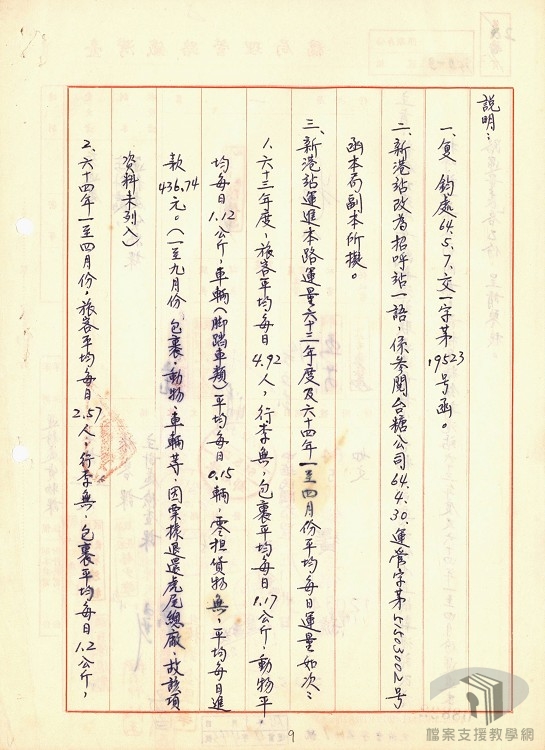 說明：
一、复 鈞處64.5.7.交一字第19523號函。
二、新港站改為招呼站一語，係參閱台糖公司64.4.30.運管字第號
函本局副本所擬。
三、新港站運進本路運量六十三年度及六十四年一至四月份平均每日運量如次：
1.六十三年度，旅客平均每日4.92人，行李無，包裹平均每日1.17公斤，動物平
均每日1.12公斤，車輛（脚踏車類）平均每日0.15輛，零担貨物無，平均每日進
款436.74元。（一至九月份，包裹、動物、車輛等，因票據退還虎尾總廠，故該項
資料未列入）
2.六十四年一至四月份，旅客平均每日2.57人，行李無，包裹平均每日1.2公斤，
9
檔案支援教學網